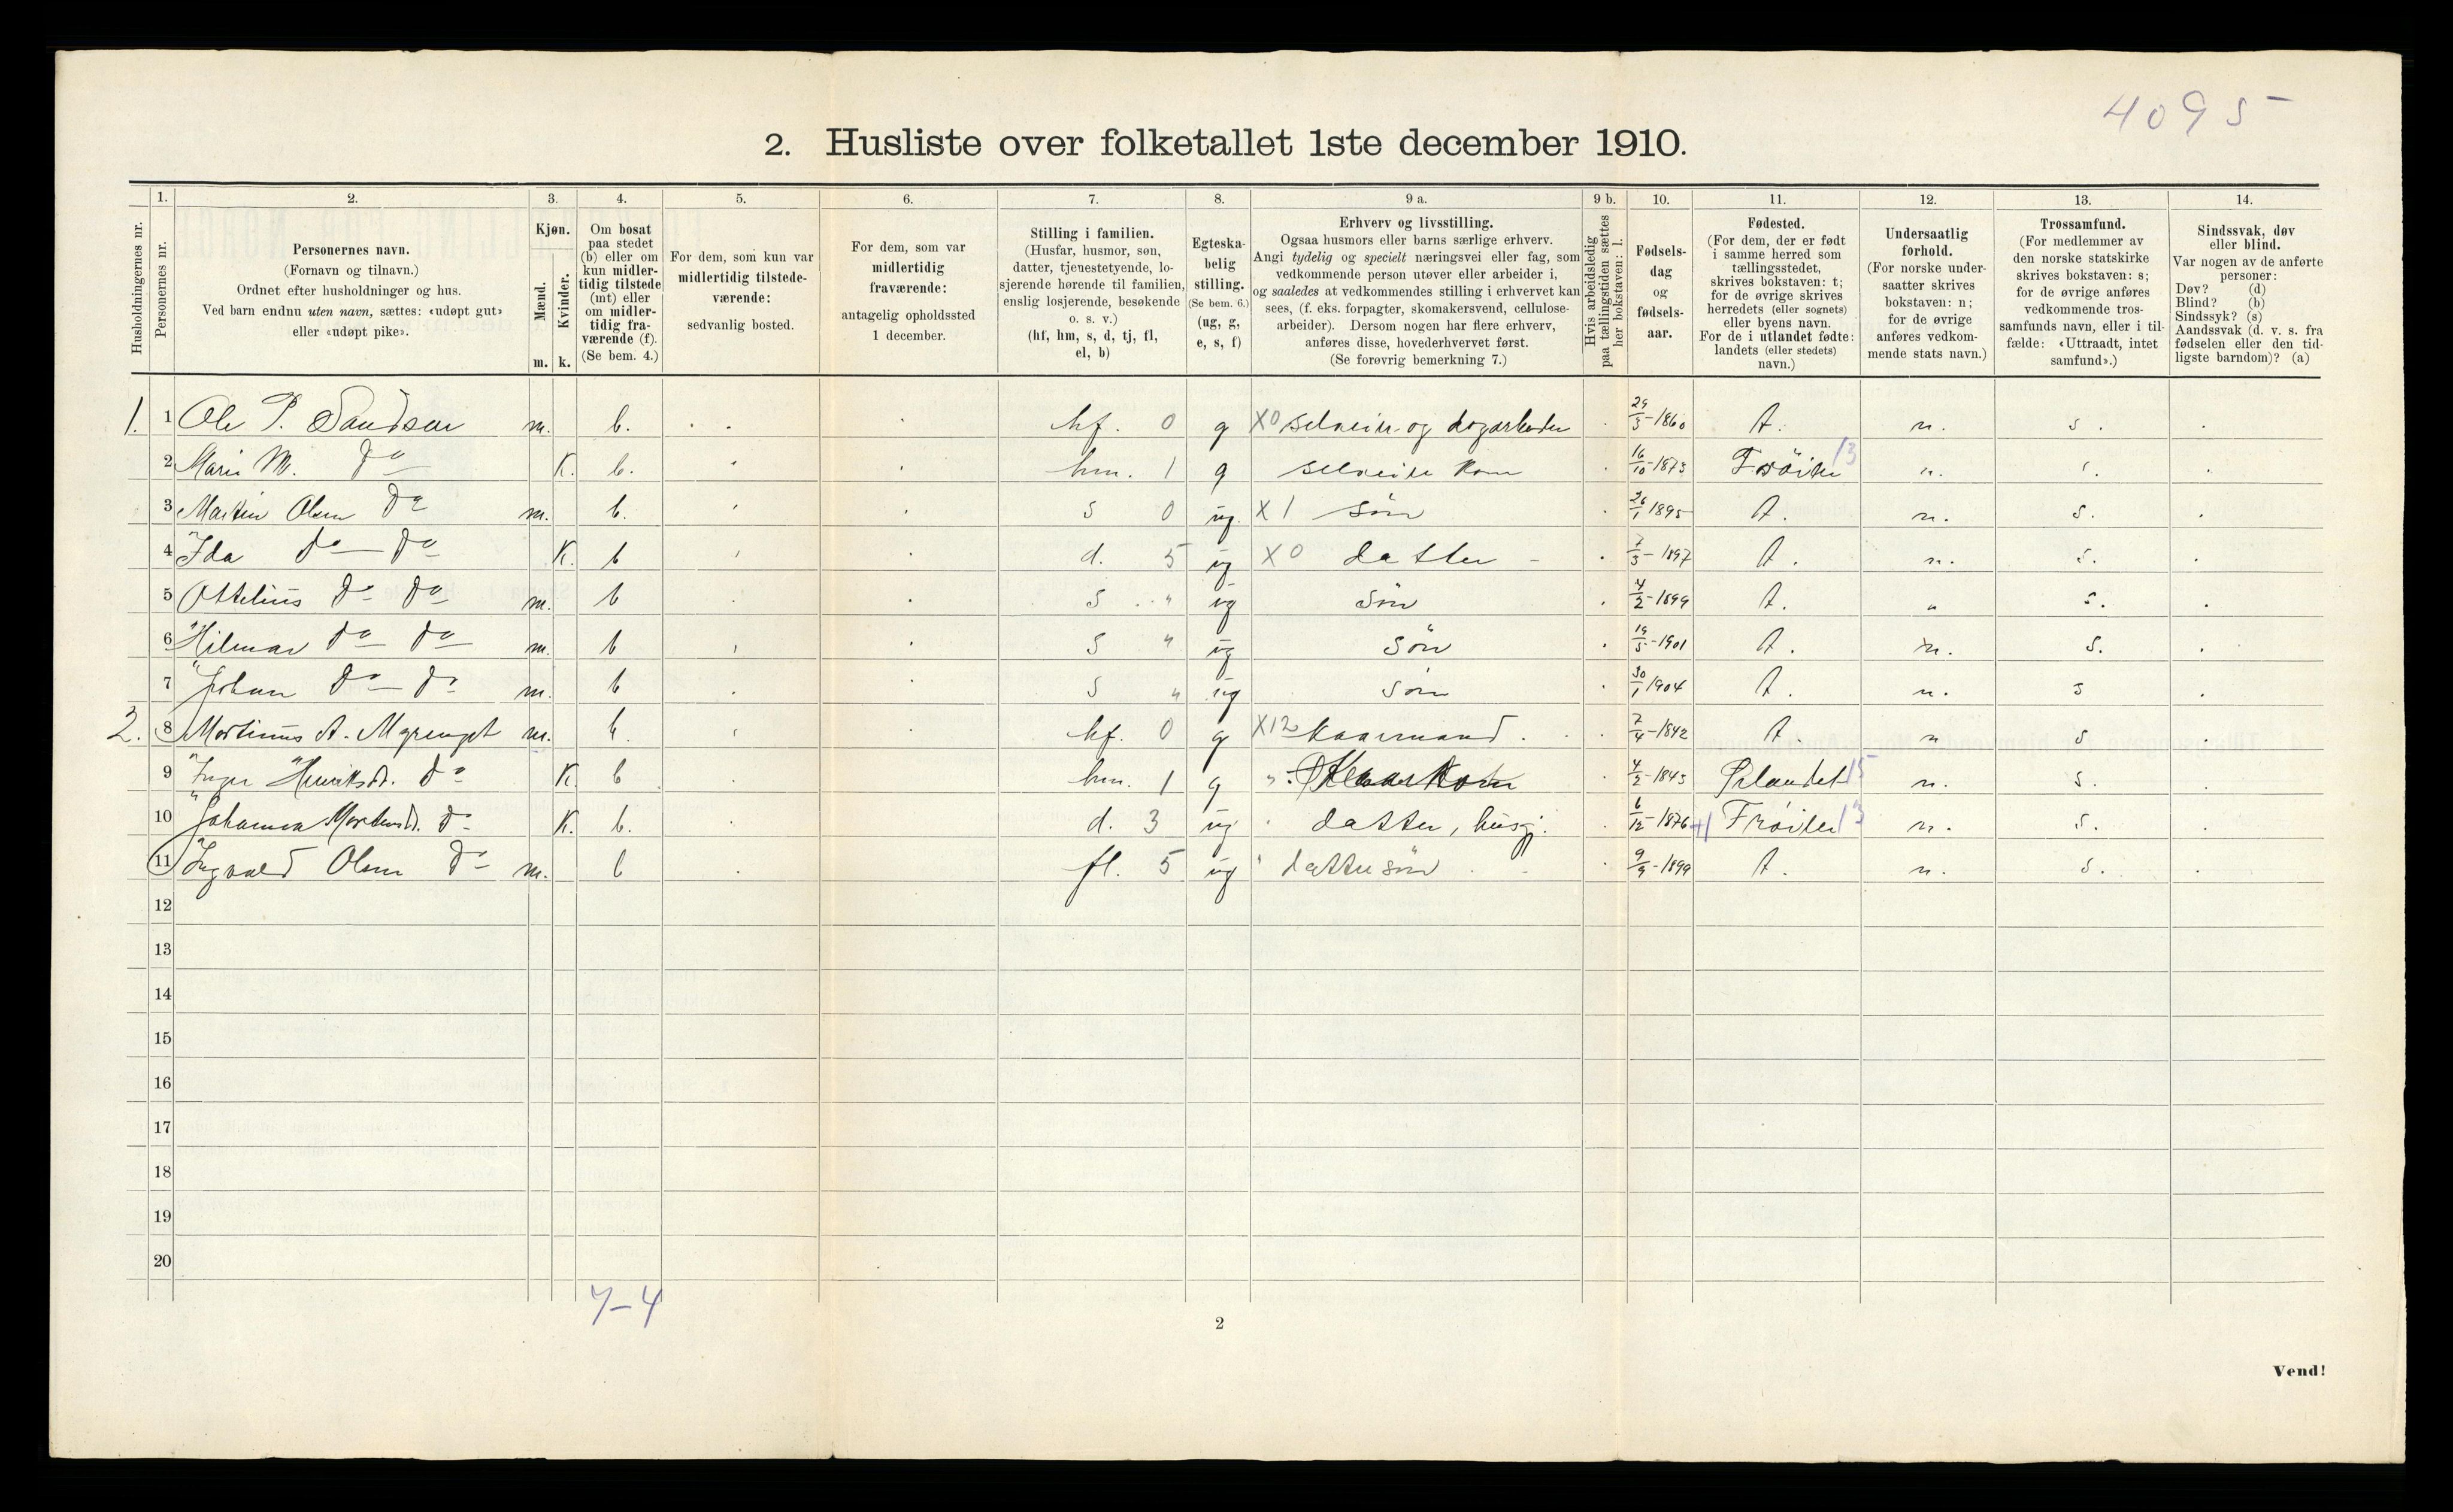 4095
2. Husliste over folketallet 1ste december 1910.
Husholdningernes nr.
1. Personernes nr.
2. Personernes navn.
(Fornavn og tilnavn.)
Ordnet efter husholdninger og hus.
Ved barn endnu uten navn, sættes: «udøpt gut»
eller «udøpt pike».
3. Kjøn.
Mænd. m.
Kvinder. k.
4. Om bosat
paa stedet
(b) eller om
kun midler-
tidig tilstede
(mt) eller
om midler-
tidig fra-
værende (f).
(Se bem. 4.)
5. For dem, som kun var
midlertidig tilstede-
værende:
sedvanlig bosted.
6. For dem, som var
midlertidig
fraværende:
antagelig opholdssted
1 december.
7. Stilling i familien.
(Husfar, husmor, søn,
datter, tjenestetyende, lo-
sjerende hørende til familien,
enslig losjerende, besøkende
o. s. v.)
(hf, hm, s, d, tj, fl,
el, b)
8. Egteska-
belig
stilling.
(Se bem. 6.)
(ug, g,
e, s, f)
9 a. Erhverv og livsstilling.
Ogsaa husmors eller barns særlige erhverv.
Angi tydelig og specielt næringsvei eller fag, som
vedkommende person utøver eller arbeider i,
og saaledes at vedkommendes stilling i erhvervet kan
sees, (f. eks. forpagter, skomakersvend, cellulose-
arbeider). Dersom nogen har flere erhverv,
anføres disse, hovederhvervet først.
(Se forøvrig bemerkning 7.)
9 b. Hvis arbeidsledig
paa tællingstiden sættes
her bokstaven: l.
10. Fødsels-
dag
og
fødsels-
aar.
11. Fødested.
(For dem, der er født
i samme herred som
tællingsstedet,
skrives bokstaven: t;
for de øvrige skrives
herredets (eller sognets)
eller byens navn.
For de i utlandet fødte:
landets (eller stedets)
navn.)
12. Undersaatlig
forhold.
(For norske under-
saatter skrives
bokstaven: n;
for de øvrige
anføres vedkom-
mende stats navn.)
13. Trossamfund.
(For medlemmer av
den norske statskirke
skrives bokstaven: s;
for de øvrige anføres
vedkommende tros-
samfunds navn, eller i til-
fælde: «Uttraadt, intet
samfund».)
14. Sindssvak, døv
eller blind.
Var nogen av de anførte
personer:
Døv? (d)
Blind? (b)
Sindssyk? (s)
Aandssvak (d. v. s. fra
fødselen eller den tid-
ligste barndom)? (a)
1. 1 Ole P. Sandsen m. b. hf. 0 g X0 selveier og dagarbeider 29/3-1860 t. n. s.
2 Marie M. do K. b. hm. 1 g selveier kone 16/10-1873 Frøien 13 n.
3 Martin Olsen do m. b. s 0 ug. X 1 søn 26/1 1895 t. n. s.
4 Ida do do K. b d. 5 ug X0 datter 7/3-1897 t. n. s.
5 Ottelius do do m. b s " ug søn 4/2-1899 t. " s.
6 Hilmar do do m. b s " ug søn 19/5-1901 t. n. s.
7 Johan do do m. b s " ug søn 30/1 1904 t. n. s
2. 8 Mortinus A. Myrenget m. b. hf. 0 g X12 kaarmand. 7/4-1842 t. n s
9 Inger Henriksd. do K. b hm. 1 g 4/2-1843 Ørlandet 15 n. s.
10 Johanna Mortensd. do K. b. d. 3 ug datter, husgj. 6/12-1876 Frøien 13 n. s.
11 Ingvald Olsen do m. b fl. 5 ug " dattersøn 9/9-1899 t. n. s.
12
13
14
15
16
17
18
19
20
7-4
2
Vend!